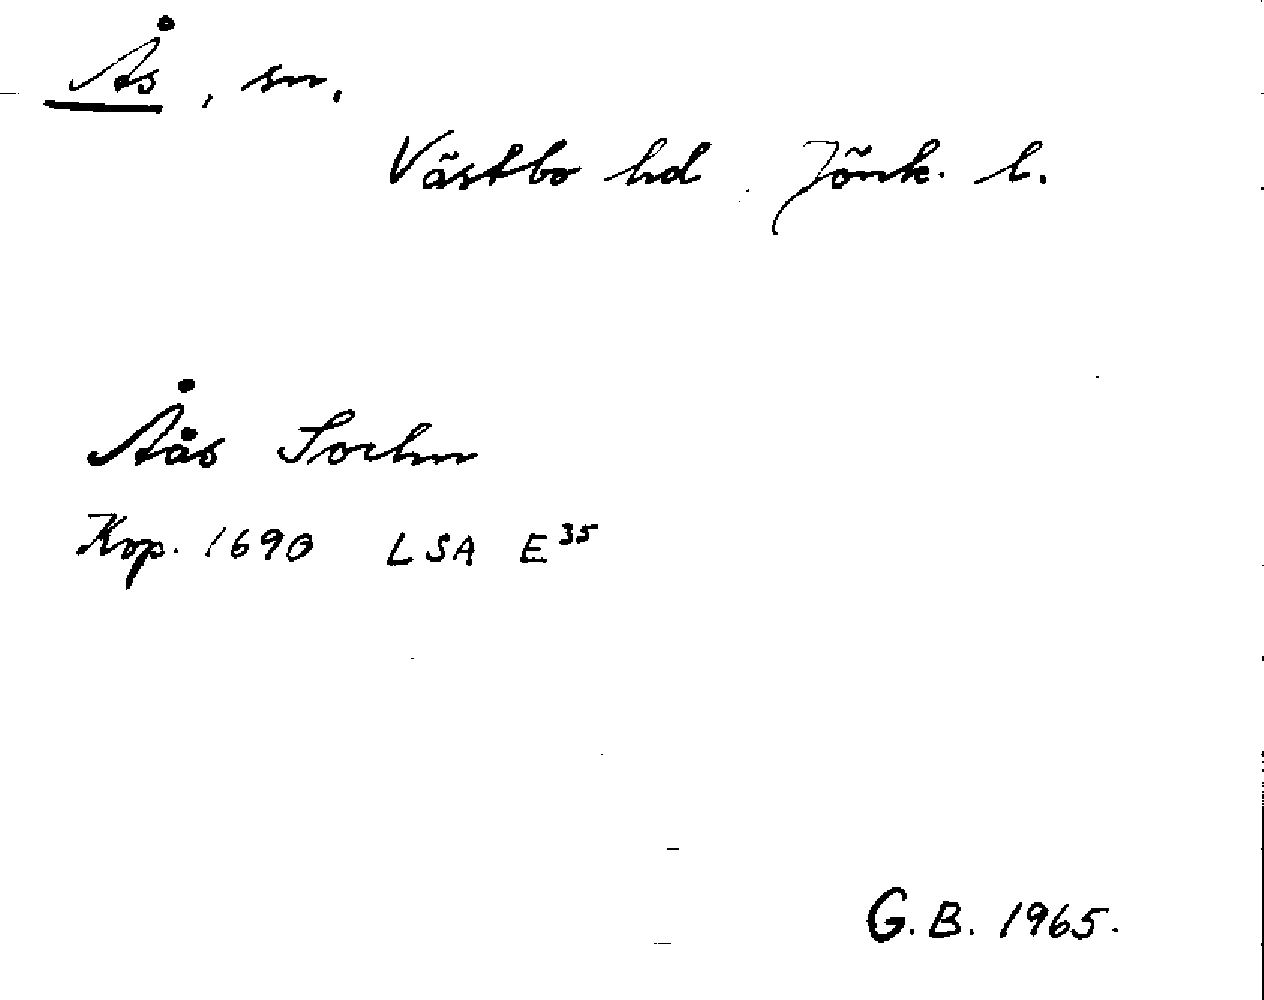 Ås, sn.
Västbo hd Jönk. l.
Åås Sochn
Kop. 1690 LSA E³⁵
G.B. 1965.